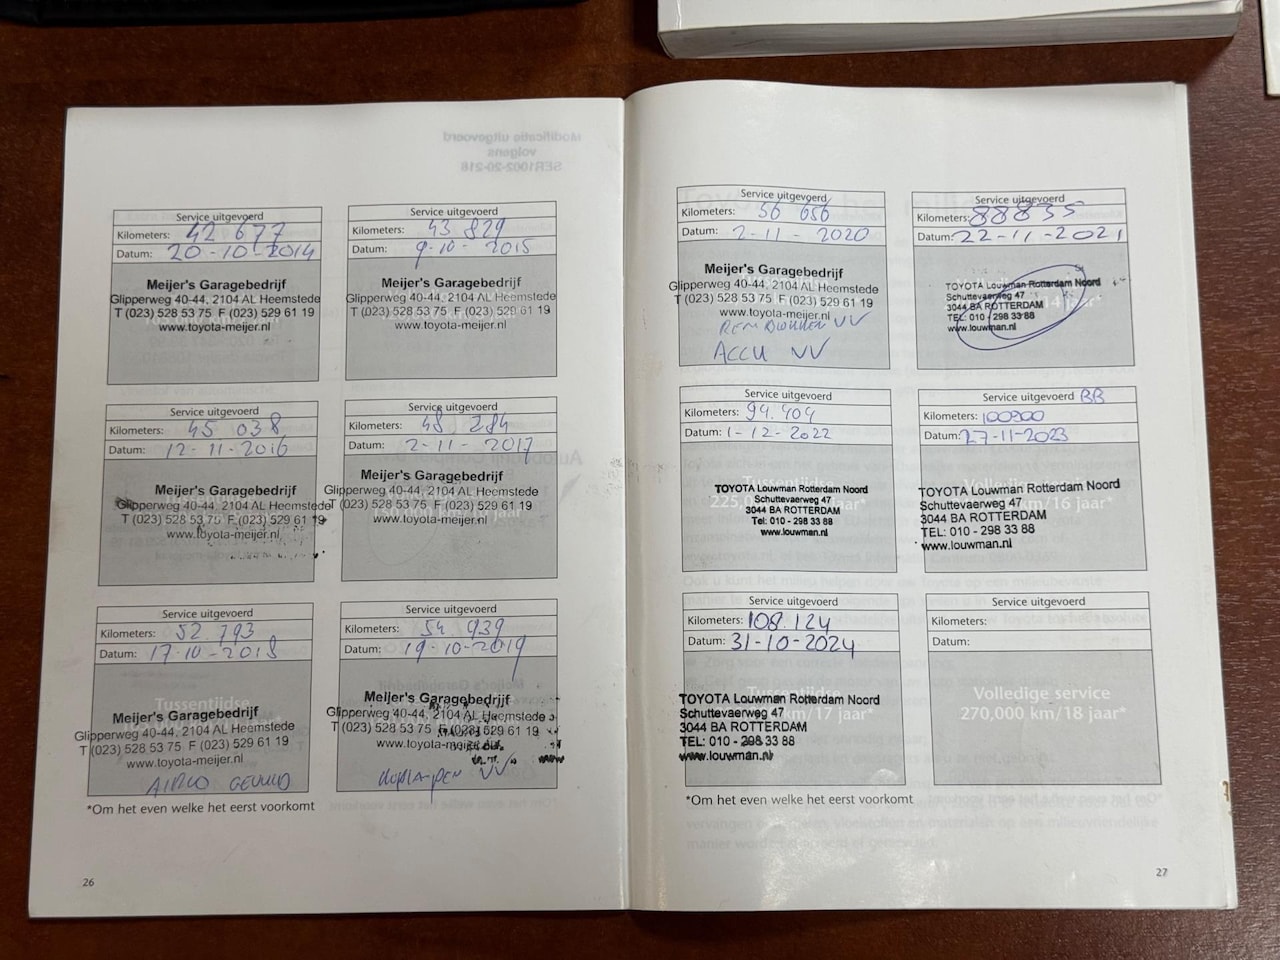 Modificatie uitgevoerd
volgens
SER1002-20-218
Service uitgevoerd
Kilometers: 42 677
Datum: 20-10-2014
Meijer's Garagebedrijf
Glipperweg 40-44, 2104 AL Heemstede
T (023) 528 53 75 F (023) 529 61 19
www.toyota-meijer.nl
Service uitgevoerd
Kilometers: 43 829
Datum: 9-10-2015
Meijer's Garagebedrijf
Glipperweg 40-44, 2104 AL Heemstede
T (023) 528 53 75 F (023) 529 61 19
www.toyota-meijer.nl
Service uitgevoerd
Kilometers: 45 038
Datum: 12-11-2016
Meijer's Garagebedrijf
Glipperweg 40-44, 2104 AL Heemstede
T (023) 528 53 75 F (023) 529 61 19
www.toyota-meijer.nl
Service uitgevoerd
Kilometers: 48 284
Datum: 2-11-2017
Meijer's Garagebedrijf
Glipperweg 40-44, 2104 AL Heemstede
T (023) 528 53 75 F (023) 529 61 19
www.toyota-meijer.nl
Service uitgevoerd
Kilometers: 52 793
Datum: 17-10-2018
Tussentijdse
Meijer's Garagebedrijf
Glipperweg 40-44, 2104 AL Heemstede
T (023) 528 53 75 F (023) 529 61 19
www.toyota-meijer.nl
AIRCO GEVULD
Service uitgevoerd
Kilometers: 54 939
Datum: 19-10-2019
Meijer's Garagebedrijf
Glipperweg 40-44, 2104 AL Heemstede
T (023) 528 53 75 F (023) 529 61 19
www.toyota-meijer.nl
KOPLAMPEN VV
*Om het even welke het eerst voorkomt
26
Service uitgevoerd
Kilometers: 56 656
Datum: 2-11-2020
Meijer's Garagebedrijf
Glipperweg 40-44, 2104 AL Heemstede
T (023) 528 53 75 F (023) 529 61 19
www.toyota-meijer.nl
VV
ACCU VV
Service uitgevoerd
Kilometers: 88835
Datum: 22-11-2021
TOYOTA Louwman Rotterdam Noord
Schuttevaerweg 47
3044 BA ROTTERDAM
TEL: 010 - 298 33 88
www.louwman.nl
Service uitgevoerd
Kilometers: 94.404
Datum: 1-12-2022
Tussentijdse
225,000
TOYOTA Louwman Rotterdam Noord
Schuttevaerweg 47
3044 BA ROTTERDAM
Tel: 010 - 298 33 88
www.louwman.nl
Service uitgevoerd BB
Kilometers: 100900
Datum: 27-11-2023
km/16 jaar*
TOYOTA Louwman Rotterdam Noord
Schuttevaerweg 47
3044 BA ROTTERDAM
TEL: 010 - 298 33 88
www.louwman.nl
Service uitgevoerd
Kilometers: 108.124
Datum: 31-10-2024
Tussentijdse
km/17 jaar*
TOYOTA Louwman Rotterdam Noord
Schuttevaerweg 47
3044 BA ROTTERDAM
TEL: 010 - 298 33 88
www.louwman.nl
Service uitgevoerd
Kilometers:
Datum:
Volledige service
270,000 km/18 jaar*
*Om het even welke het eerst voorkomt
27